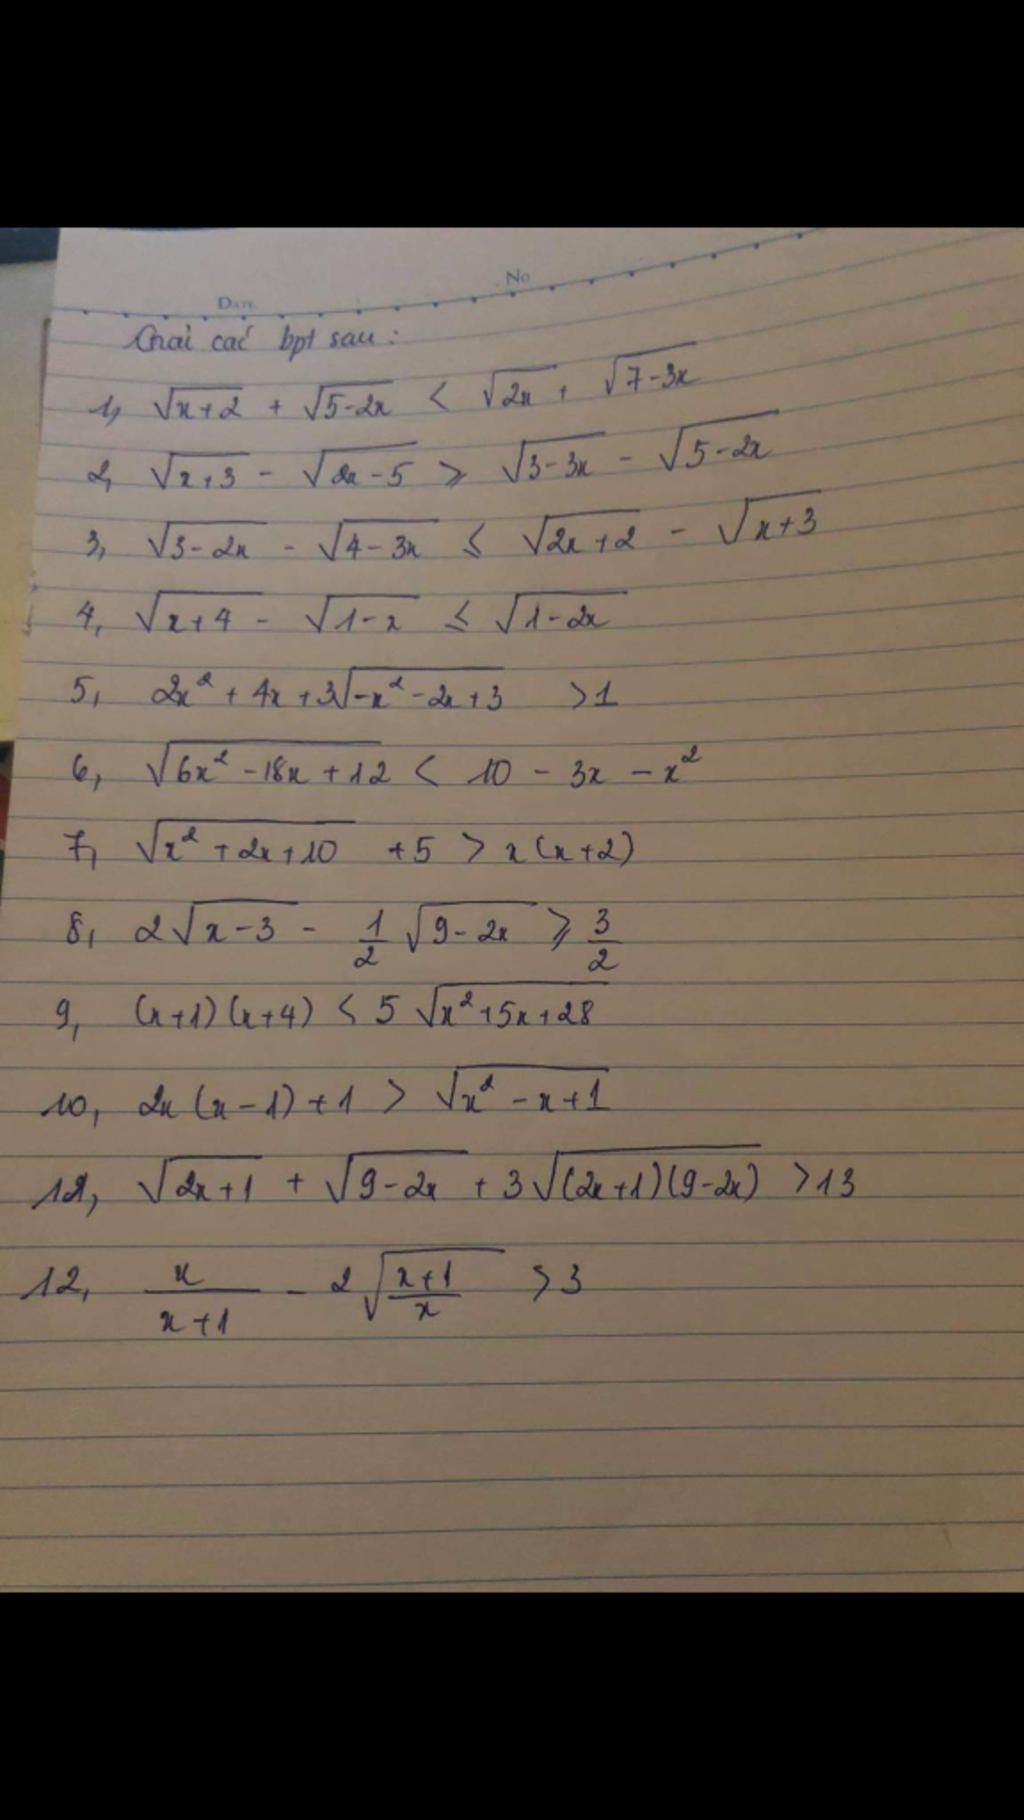 DATE No
Giải các bpt sau:
1, √(x+2) + √(5-2x) < √(2x) + √(7-3x)
2, √(x+3) - √(2x-5) ≥ √(3-3x) - √(5-2x)
3, √(3-2x) - √(4-3x) ≤ √(2x+2) - √(x+3)
4, √(x+4) - √(1-x) ≤ √(1-2x)
5, 2x² + 4x + 3√(-x²-2x+3) > 1
6, √(6x²-18x+12) < 10 - 3x - x²
7, √(x²+2x+10) + 5 > x(x+2)
8, 2√(x-3) - 1/2 √(9-2x) ≥ 3/2
9, (x+1)(x+4) < 5√(x²+5x+28)
10, 2x(x-1)+1 > √(x²-x+1)
12, √(2x+1) + √(9-2x) + 3√((2x+1)(9-2x)) > 13
12, x/(x+1) - 2√((x+1)/x) > 3